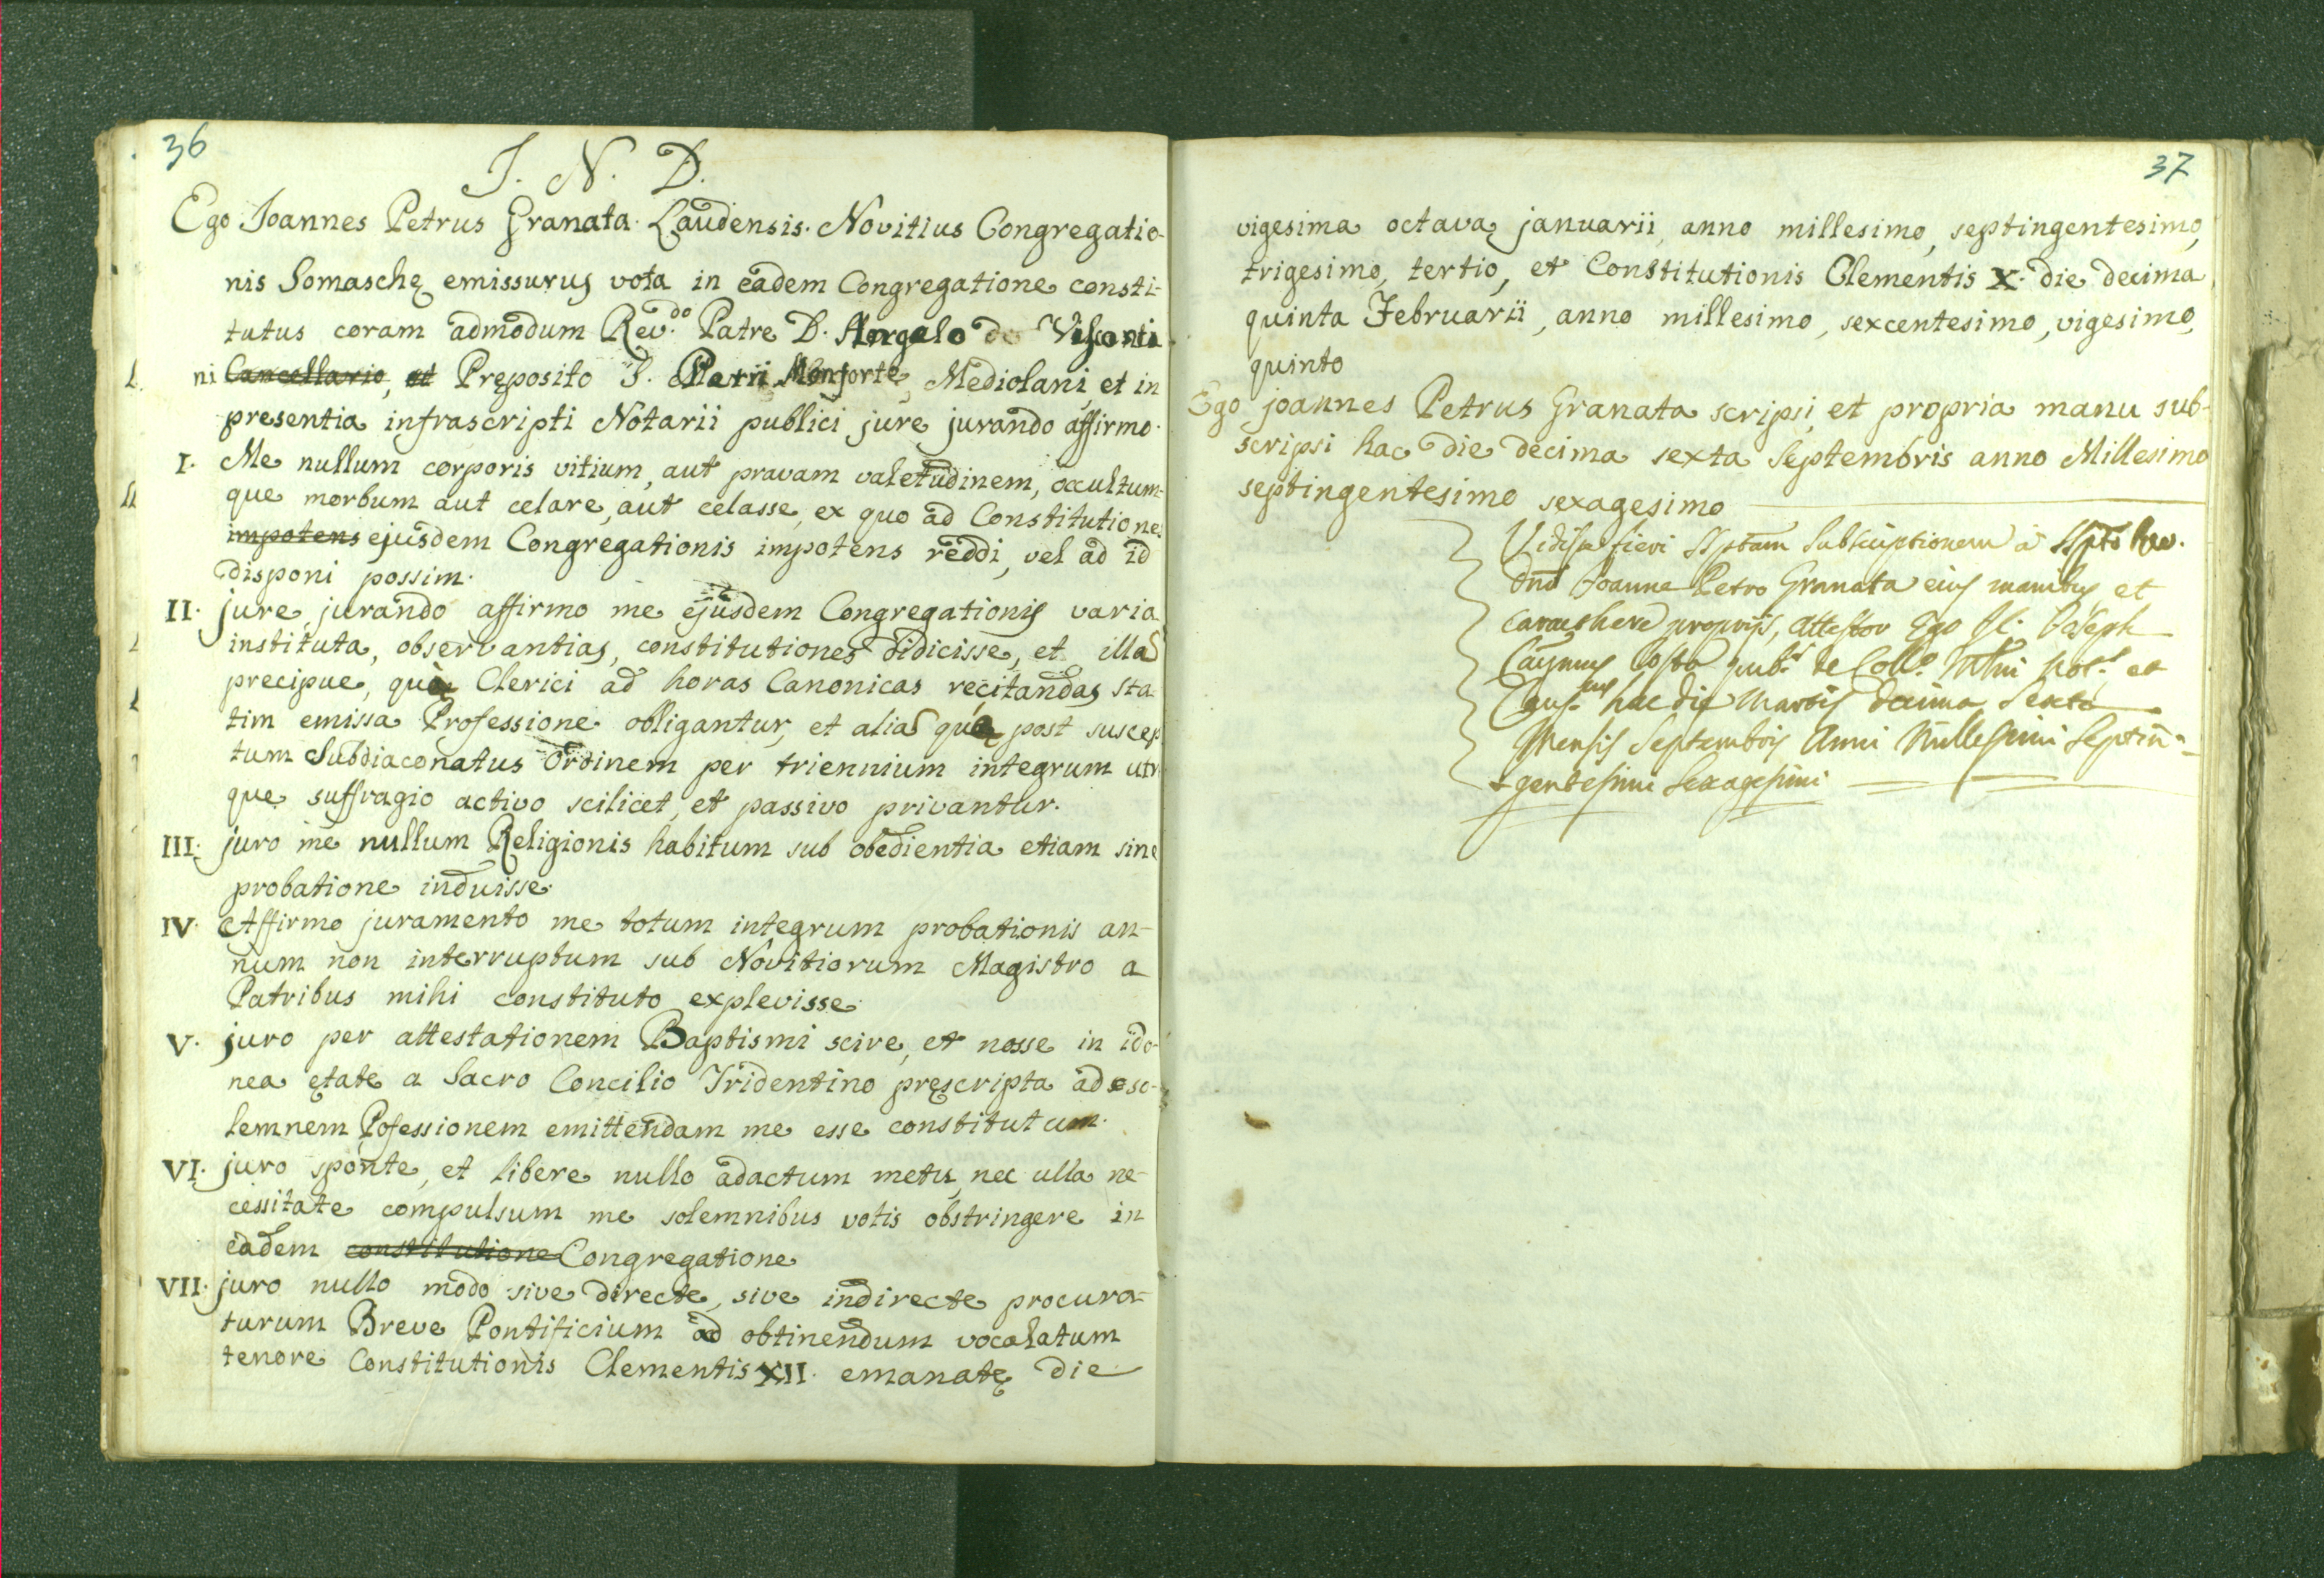 36
J. N. D.
Ego Joannes Petrus Granata Laudensis Novitius Congregatio-
nis Somaschę emissurus vota in eadem Congregatione consti-
tutus coram admodum Rev.do Patre D. Angelo de Visconti
ni Cancellario, et Pręposito S. Marii Monforte, Mediolani, et in
presentia infrascripti Notarii publici jure jurando affirmo.
I. Me nullum corporis vitium, aut pravam valetudinem, occultum-
que morbum aut celare, aut celasse, ex quo ad Constitutiones
impotens ejusdem Congregationis impotens reddi, vel ad id
disponi possim.
II. jure jurando affirmo me ejusdem Congregationis varia
instituta, observantias, constitutiones didicisse, et illas
precipue, quę Clerici ad horas Canonicas recitandas sta
tim emissa Professione obligantur, et alias quę post suscep
tum Subdiaconatus Ordinem per triennium integrum utr
que suffragio activo scilicet, et passivo privantur.
III. juro me nullum Religionis habitum sub obedientia etiam sine
probatione induisse.
IV. Affirmo juramento me totum integrum probationis an-
num non interruptum sub Novitiorum Magistro a
Patribus mihi constituto explevisse.
V. juro per attestationem Baptismi scire, et nosse in ido-
nea ętate a Sacro Concilio Tridentino pręscripta ad so-
lemnem Pofessionem emittendam me esse constitutum.
VI. juro sponte, et libere nullo adactum metu, nec ulla ne-
cessitate compulsum me solemnibus votis obstringere in
eadem constitutione Congregatione
VII. juro nullo modo sive directe, sive indirecte procura-
turum Breve Pontificium ad obtinendum vocalatum
tenore Constitutionis Clementis XII. emanatę die
37
vigesima octava januarii, anno millesimo, septingentesimo,
trigesimo, tertio, et Constitutionis Clementis X. die decima
quinta Februarii, anno millesimo, sexcentesimo, vigesimo,
quinto
Ego joannes Petrus Granata scripsi, et propria manu sub-
scripsi hac die decima sexta Septembris anno Millesimo
septingentesimo sexagesimo
Vidisse fieri sptam subscriptionem a spto
Dno Joanne Petro Granata eius manibus et
propriis, attestor Ego Joseph
Caymus pub.s de Coll.o Mlni Not.s et
Caus. hac die Martis decima sexta
Mensis Septembris Anni Millesimi Septin-
gentesimi Sexagesimi